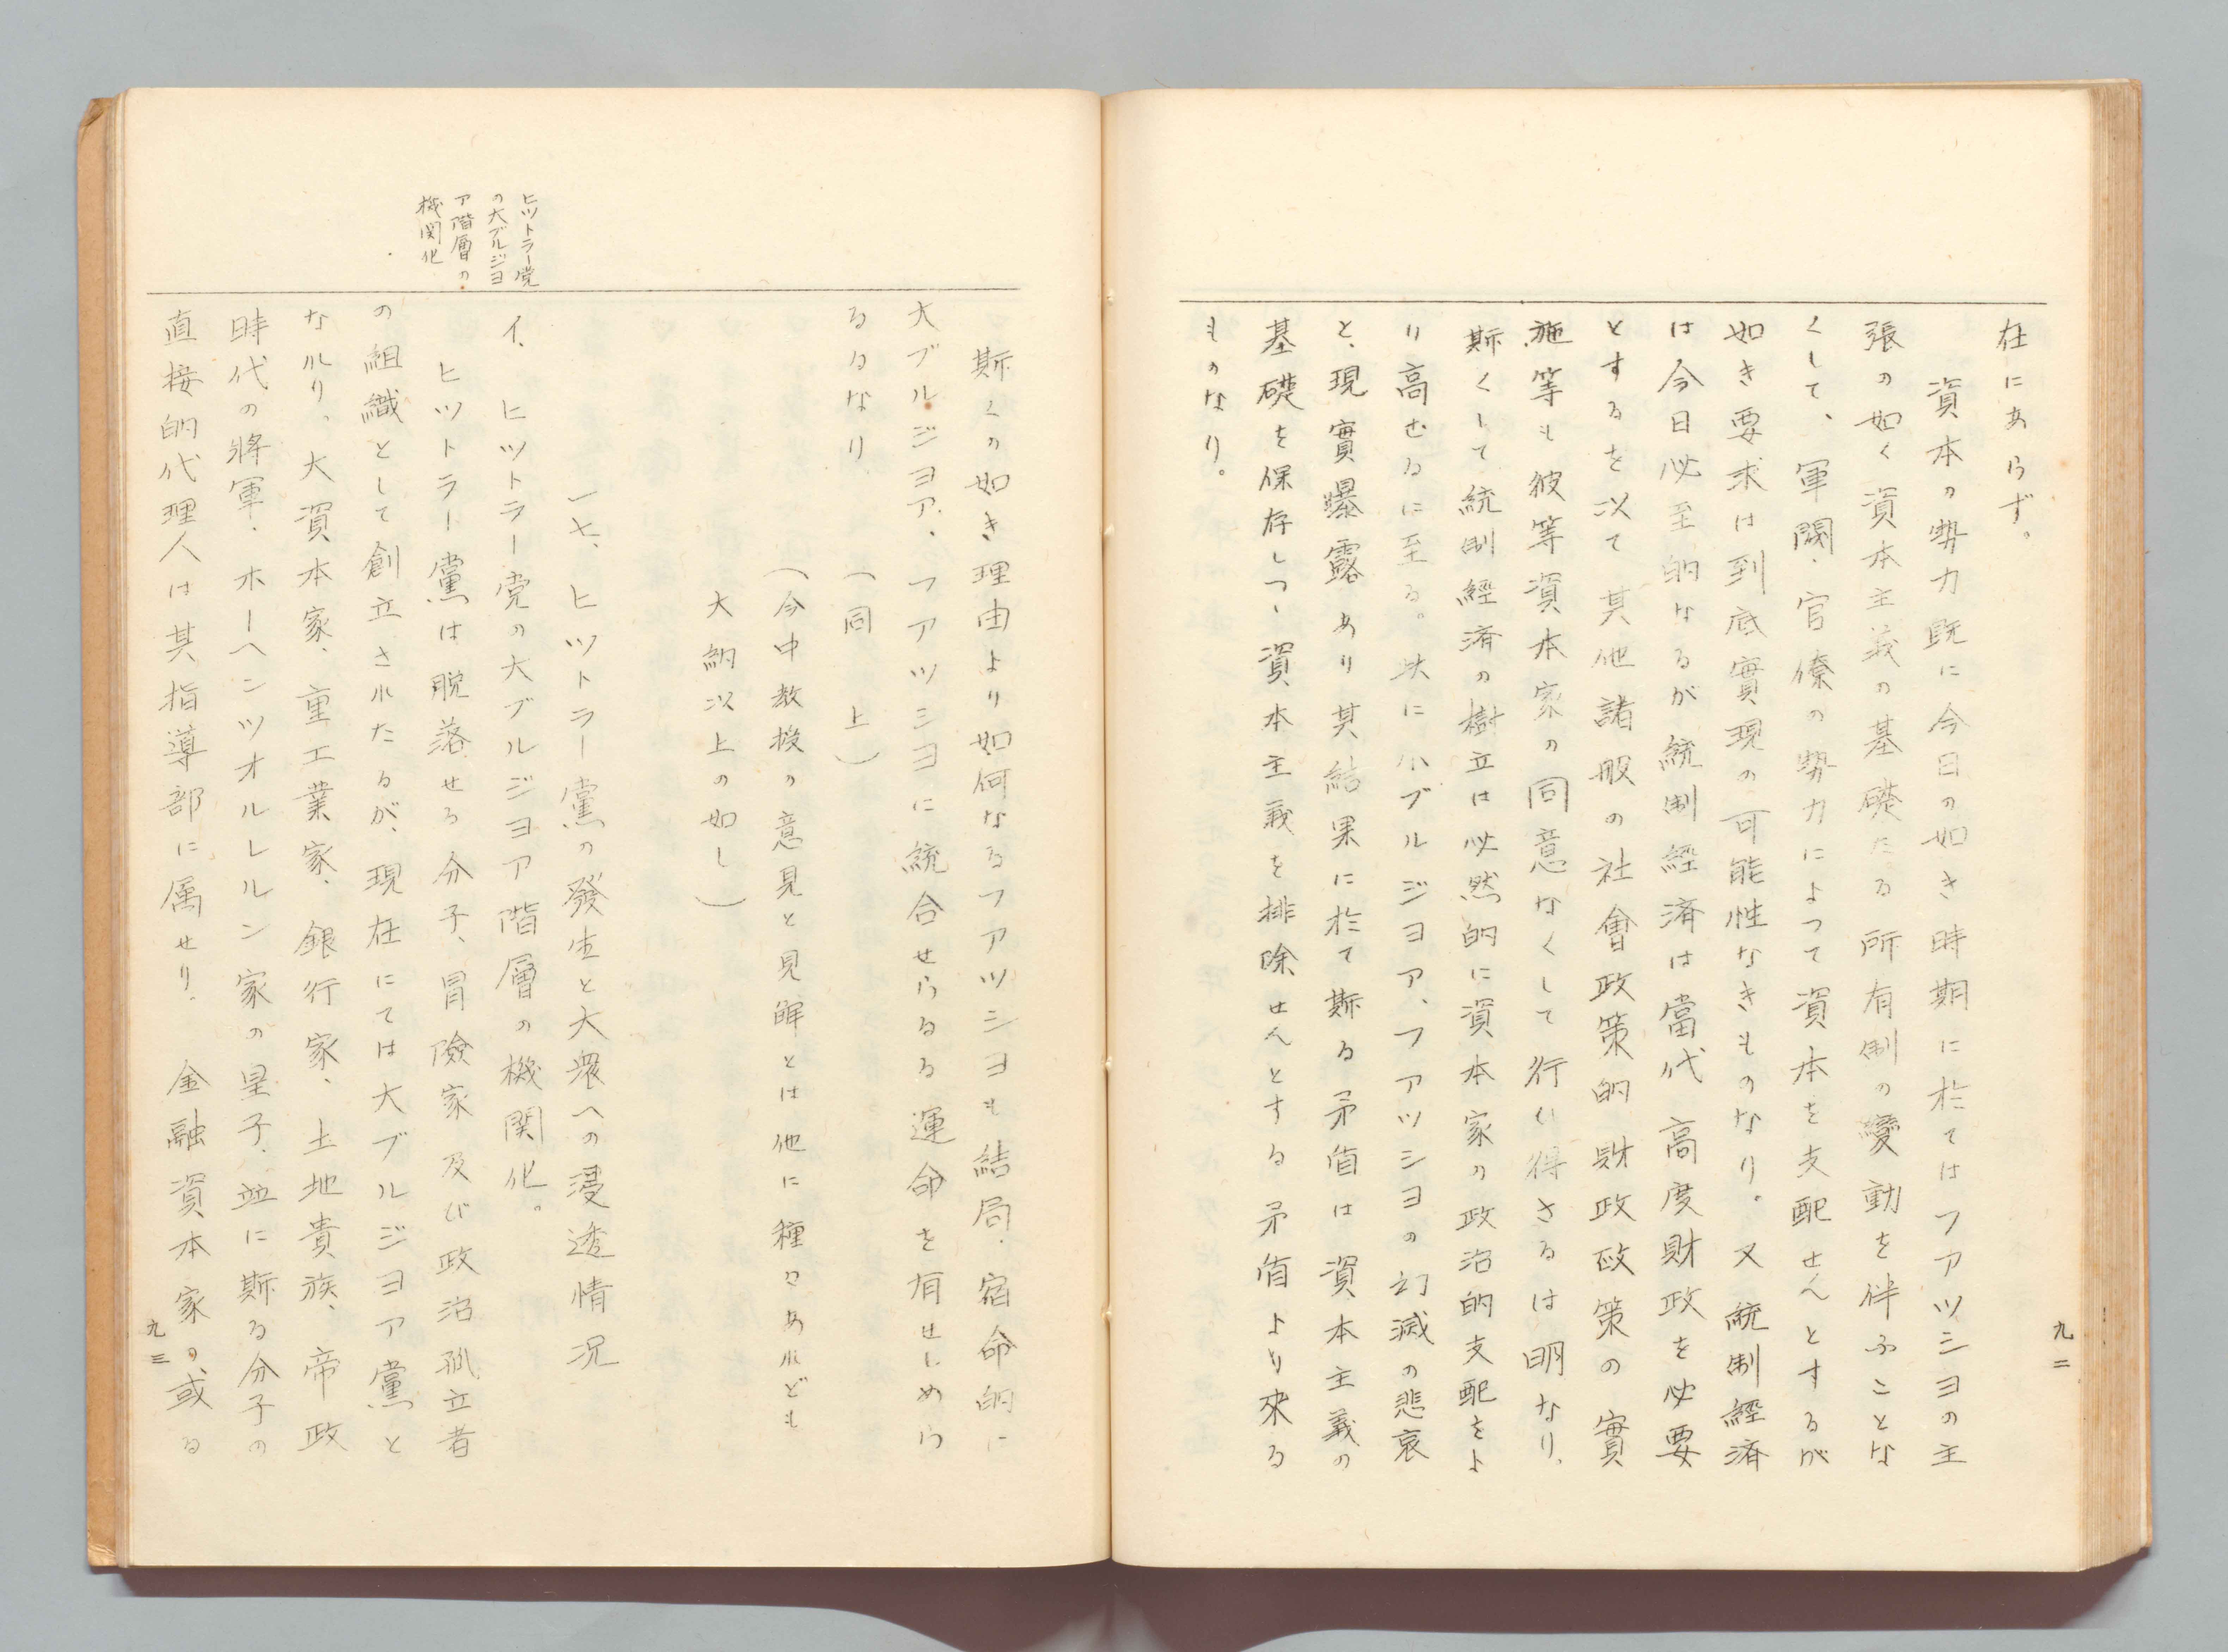 在にあらず。
資本の勢力既に今日の如き時期に於てはフアツシヨの主
張の如く資本主義の基礎たる所有制の變動を伴ふことな
くして、軍閥・官僚の勢力によつて資本を支配せんとするが
如き要求は到底實現の可能性なきものなり。又統制經済
は今日必至的なるが統制經済は當代高度財政を必要
とするを以て其他諸般の社會政策的財政政策の實
施等も彼等資本家の同意なくして行い得さるは明なり。
斯くして統制經済の樹立は必然的に資本家の政治的支配をよ
り高むるに至る。玆に小ブルジヨア、フアツシヨの幻滅の悲哀
と、現實曝露あり其結果に於て斯る矛盾は資本主義の
基礎を保存しつゝ資本主義を排除せんとする矛盾より來る
ものなり。
九二
斯くの如き理由より如何なるフアツシヨも結局、宿命的に
大ブルジヨア、フアツシヨに統合せらるる運命を有せしめら
るるなり (同 上)
(今中教授の意見と見解とは他に種々あれども
大納以上の如し)
一七、ヒツトラー黨の發生と大衆への浸透情況
イ、ヒツトラー党の大ブルジヨア階層の機関化。
ヒツトラー党
の大ブルジヨ
ア階層の
機関化
ヒツトラー黨は脱落せる分子、冒險家及び政治孤立者
の組織として創立されたるが、現在にては大ブルジヨア黨と
なれり。大資本家、重工業家、銀行家、土地貴族、帝政
時代の將軍・ホーヘンツオルレルン家の皇子、並に斯る分子の
直接的代理人は其指導部に属せり。金融資本家の、或る
九三